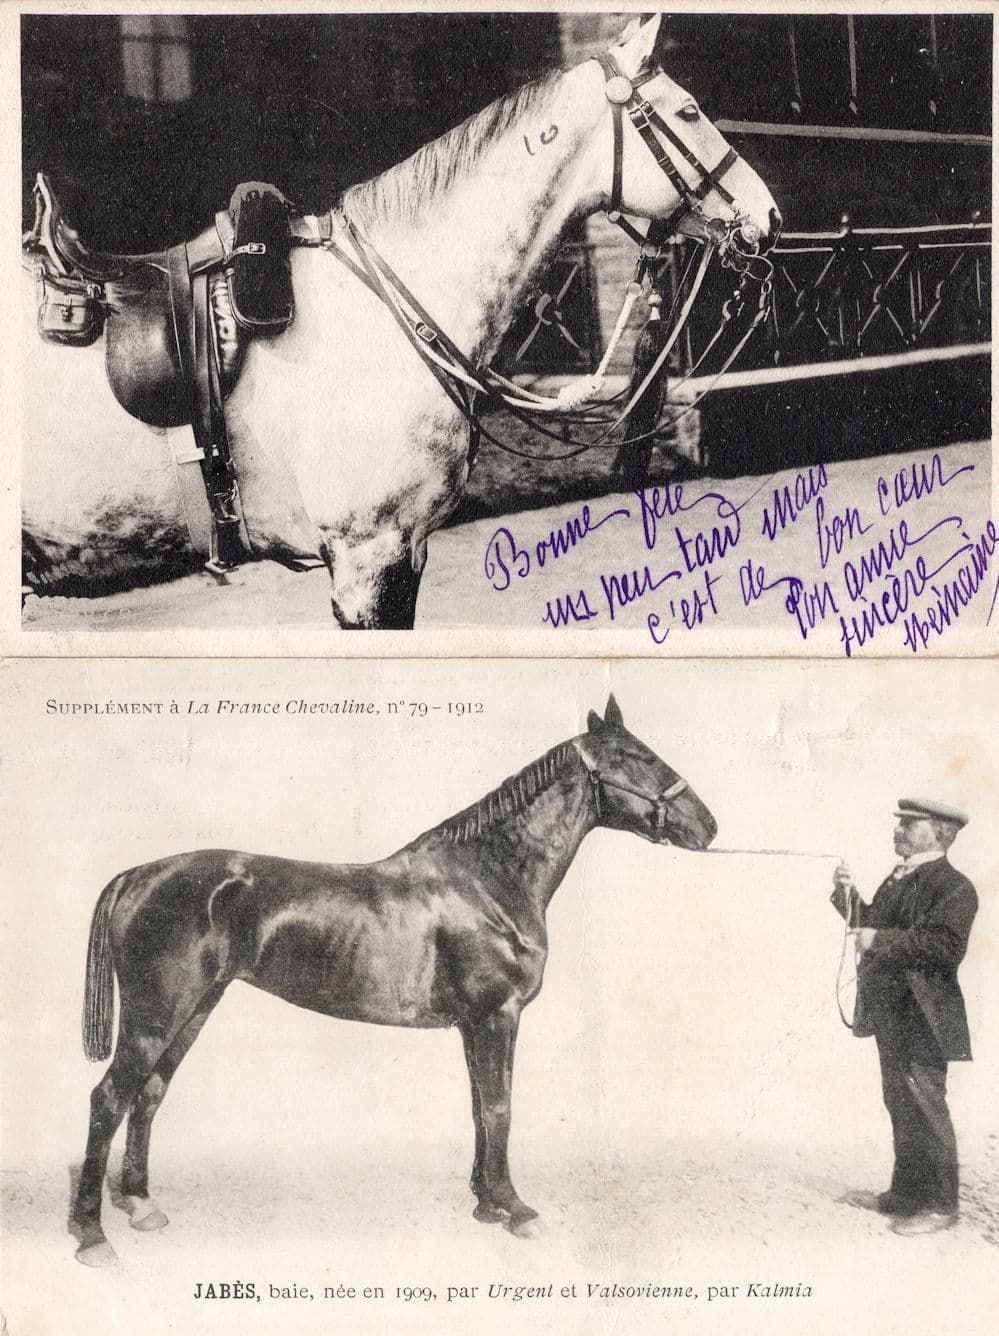 10
Bonne fête
un peu tard mais
c'est de bon cœur
Ton amie
sincère
SUPPLÉMENT à La France Chevaline, n° 79 – 1912
JABÈS, baie, née en 1909, par Urgent et Valsovienne, par Kalmia